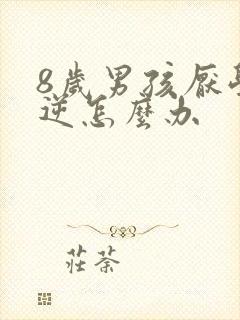 8歲男孩厭學
逆怎麼办
莊荼